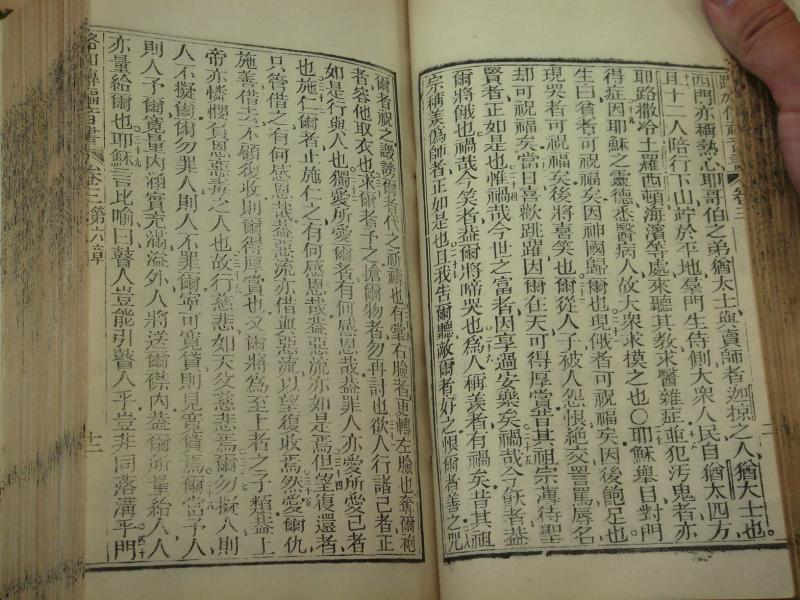 西門亦稱熱心耶哥伯之弟猶太士與賣師者迦掠之人猶大士也
且十二人陪行下山竚於平地羣門生侍側大衆人民自猶太四方
耶路撒冷土羅西頓海濱等處來聽其教求醫雜症並犯汚鬼者亦
得症因耶穌之靈德悉醫病人故大衆求摸之也〇耶穌舉目對門
生曰貧者可祝福矣因神國歸爾也現俄者可祝福矣因後飽足也
現哭者可祝福矣後將喜笑也爾從人子被人怨恨絕交詈罵辱名
却可祝福矣當日喜歡跳躍因爾在天可得厚賞昔其祖宗薄待聖
賢者正如是也惟禍哉今世之富者因享過安樂矣禍哉今飫者蓋
爾將餓也禍哉今笑者蓋爾將啼哭也爲人稱羨者有禍矣昔其祖
宗稱羨僞師者正如是也且我告爾聽敵爾者好之恨爾者善之咒
爾者祝之譭謗爾者代之祈禱也有掌右臉者更轉左臉也奪爾袍
者容他取衣也求爾者予之搶爾物者勿再討也欲人行諸己者正
如是行與人也獨愛所愛爾者有何感恩哉蓋罪人亦愛所愛己者
也施仁爾者止施仁之有何感恩哉蓋惡流亦如是焉但望復還者
只管借之有何感恩哉蓋惡流亦借與惡流以望復收焉然愛爾仇
施善借去不顧復收則爾得厚賞也又爾將爲至上者之子類蓋上
帝亦憐憫負恩惡毒之人也故行慈悲如天父慈悲焉爾勿擬人則
人不擬爾爾勿罪人則人不罪爾寧可寬貸則見寬貸焉爾當予人
則人予爾寬量內涵實充滿溢外人將送爾襟內蓋爾所量給人人
亦量給爾也耶穌言比喻曰瞽人豈能引瞽人乎豈非同落溝乎門
卷三第六章